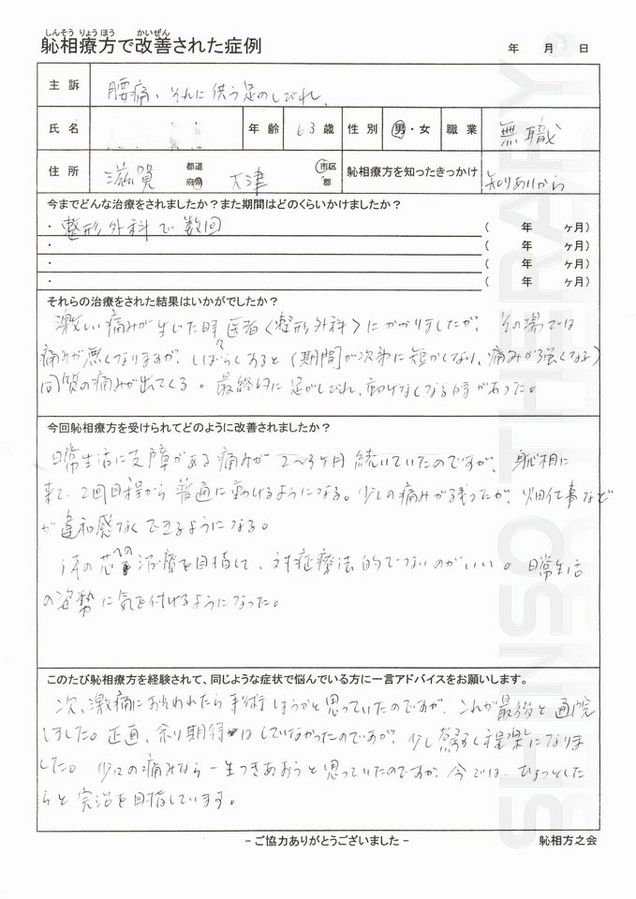 しんそう りょうほう かいぜん
躰相療方で改善された症例
年 月 日
主訴 腰痛、それに伴う足のしびれ
氏名 年齢 63歳 性別 男・女 職業 無職
住所 滋賀 都道府県 大津 市区郡 躰相療方を知ったきっかけ 知りあいから
今までどんな治療をされましたか？また期間はどのくらいかけましたか？
・整形外科で数回 ( 年 ヶ月)
・ ( 年 ヶ月)
・ ( 年 ヶ月)
・ ( 年 ヶ月)
それらの治療をされた結果はいかがでしたか？
激しい痛みが生じた時医者(整形外科)にかかりましたが、その場では
痛みが無くなりますが、しばらくすると(期間が次第に短かくなり、痛みが強くなる)
同質の痛みが出てくる。最終的に足がしびれ、動けなくなる時があった。
今回躰相療方を受けられてどのように改善されましたか？
日常生活に支障がある痛みが2〜3ヶ月続いていたのですが、躰相に
来て、2回目程から普通に動けるようになる。少しの痛みが残ったが、畑仕事など
が違和感なくできるようになる。
体の芯への治療を目指して、対症療法的でないのがいい。日常生活
の姿勢に気を付けるようになった。
このたび躰相療方を経験されて、同じような症状で悩んでいる方に一言アドバイスをお願いします。
次、激痛におそわれたら手術しようかと思っていたのですが、これが最後と通院
しました。正直、余り期待はしていなかったのですが、少しずつ楽になりま
した。少々の痛みなら一生つきあおうと思っていたのですが、今では、ひょっとした
らと完治を目指しています。
- ご協力ありがとうございました -
躰相方之会
SHINSO THERAPY